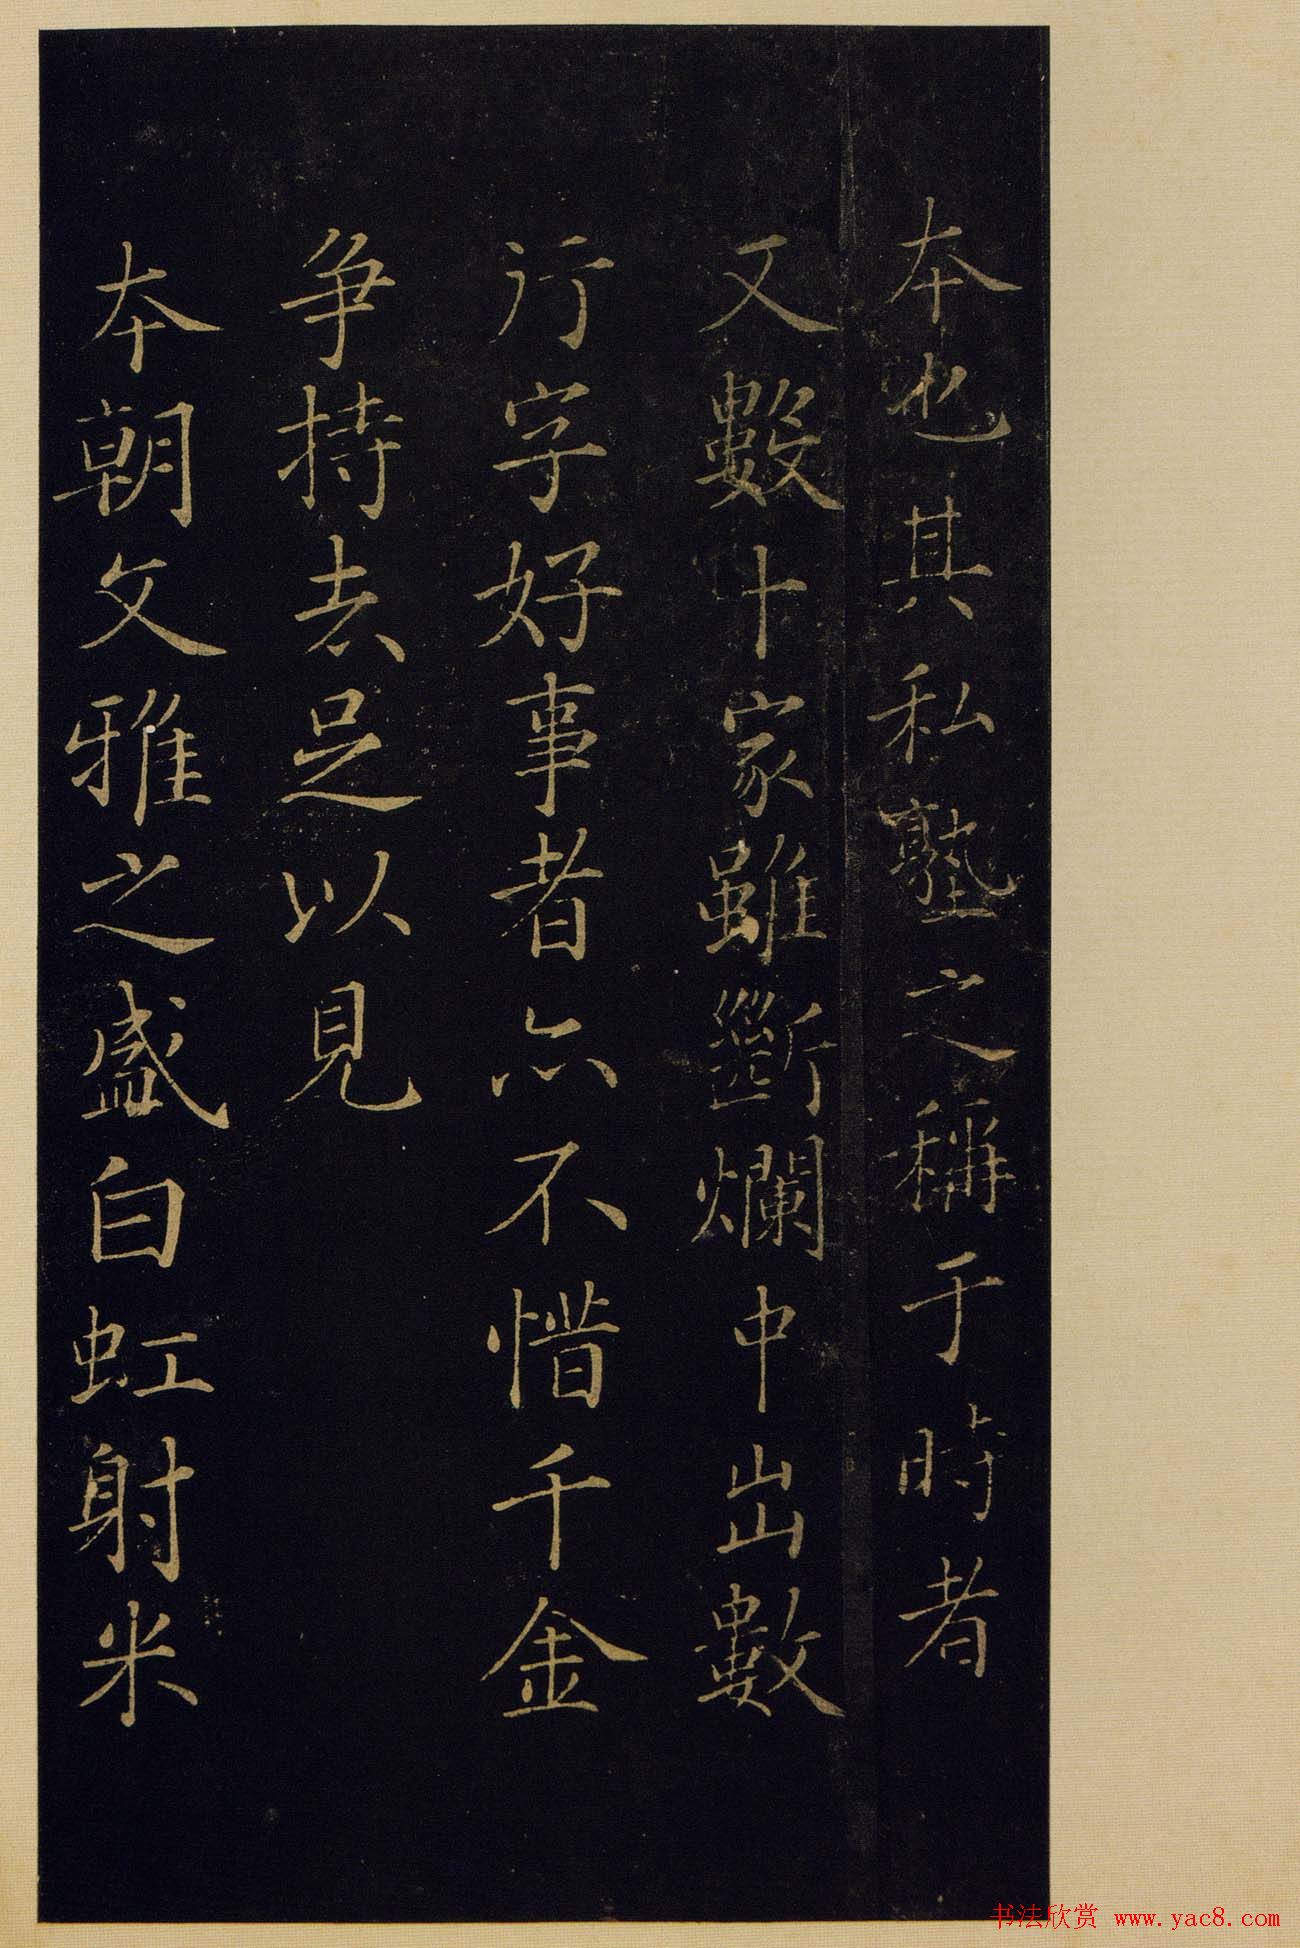 本也其私塾之稱于時者
又數十家雖斷爛中出數
行字好事者亦不惜千金
争持去足以見
本朝文雅之盛白虹射米
书法欣赏 www.yac8.com